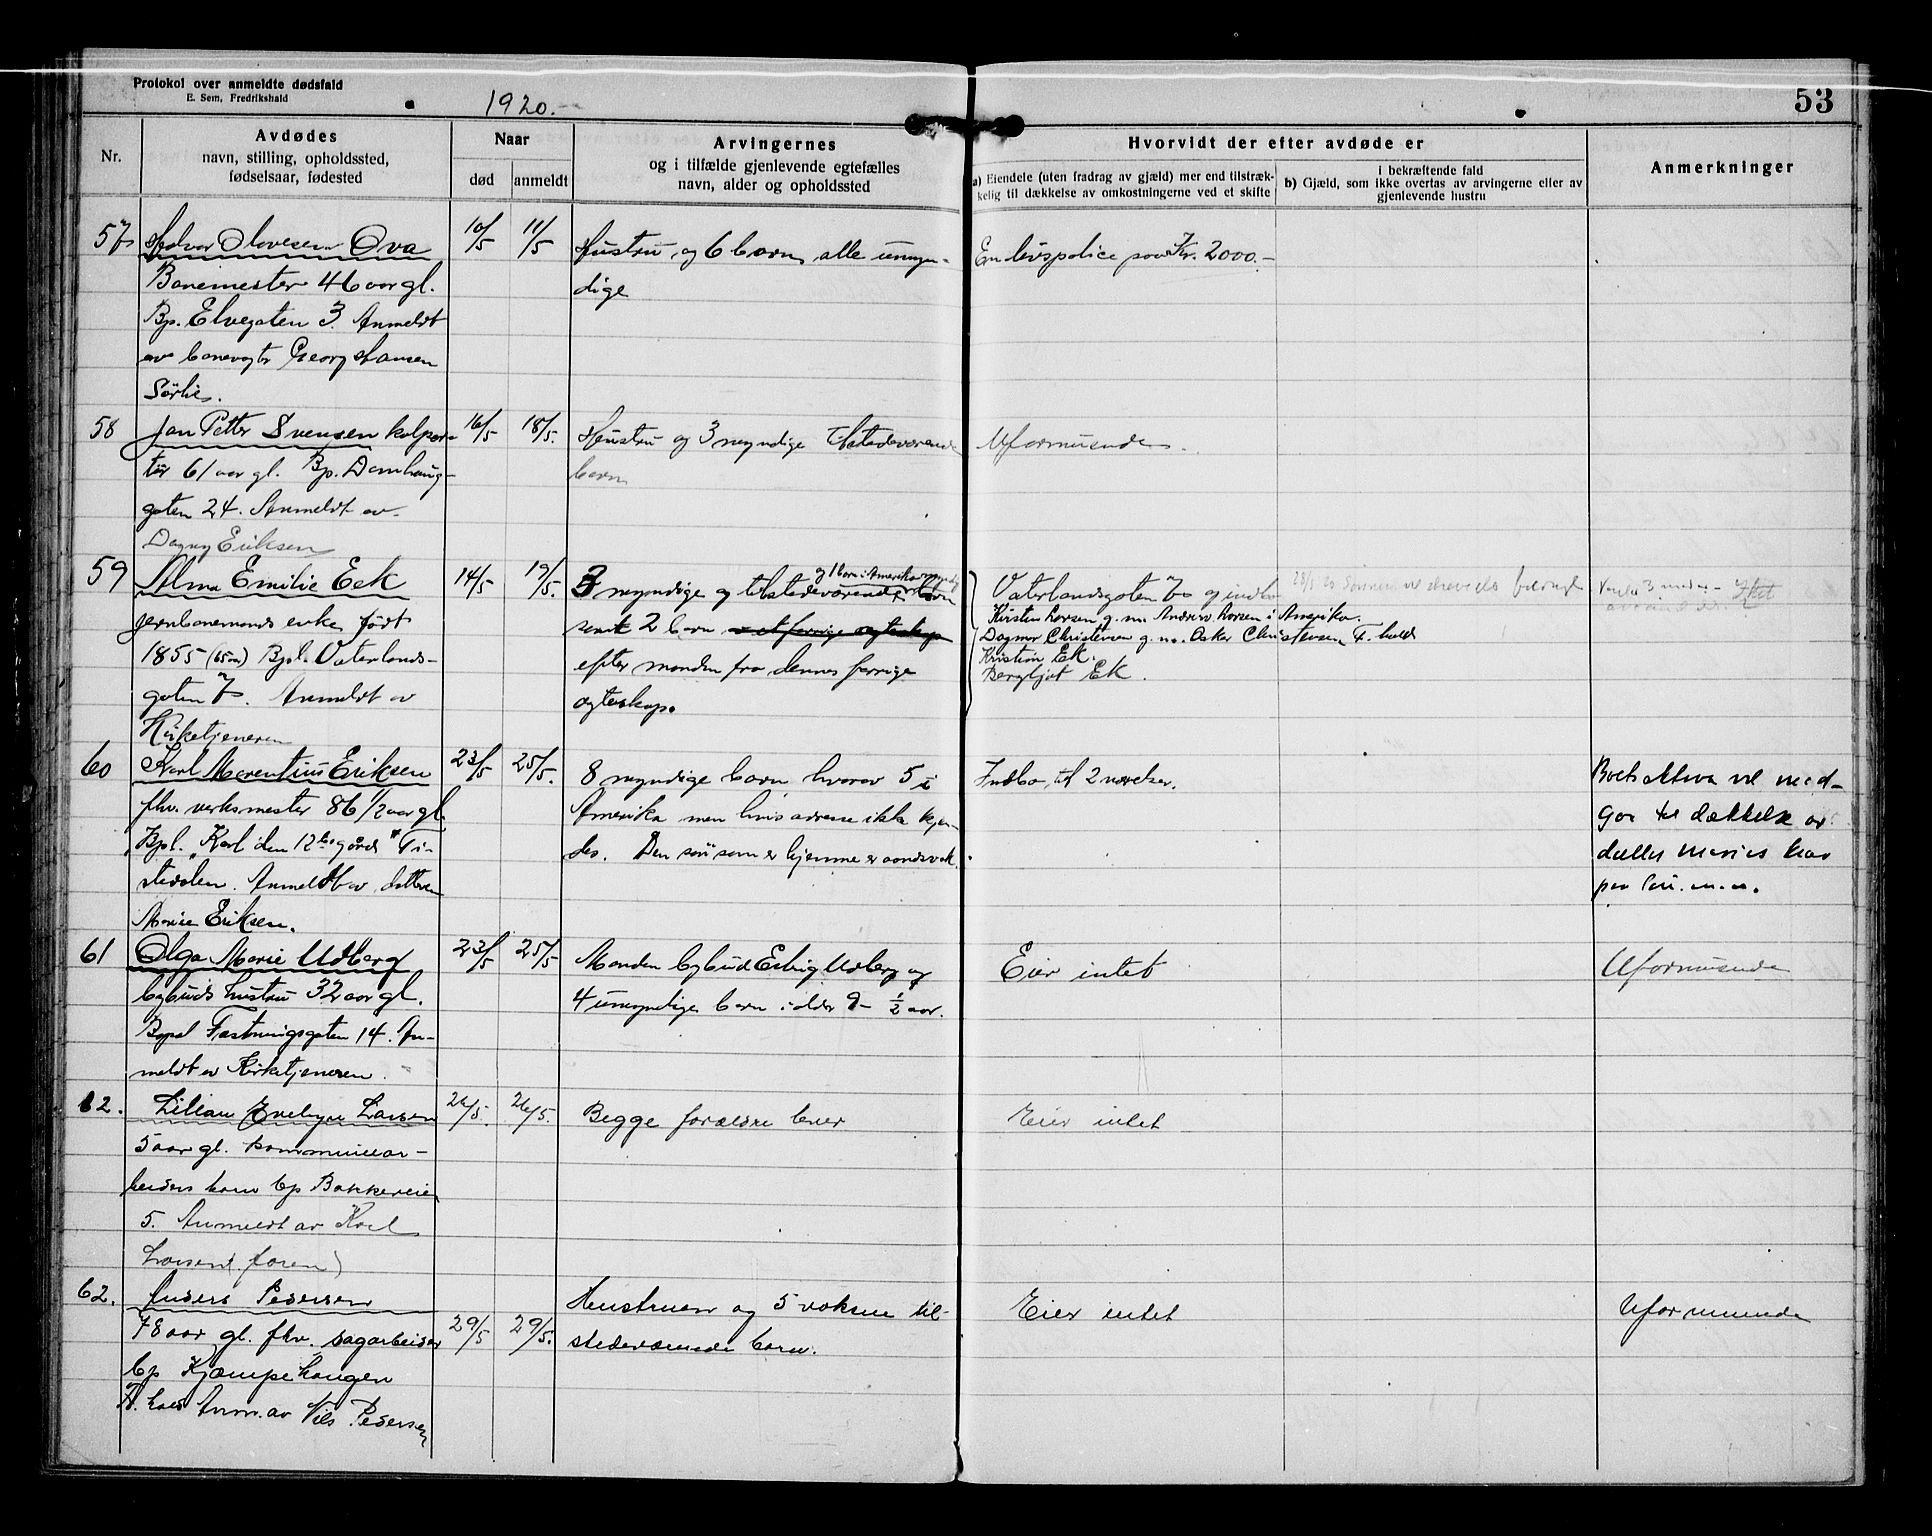 Protokol over anmeldte dødsfald
E. Sem, Fredrikshald
1920.
53
Nr.
Avdødes
navn, stilling, opholdssted,
fødselsaar, fødested
Naar
død
anmeldt
Arvingernes
og i tilfælde gjenlevende egtefælles
navn, alder og opholdssted
Hvorvidt der efter avdøde er
a) Eiendele (uten fradrag av gjæld) mer end tilstræk-
kelig til dækkelse av omkostningerne ved et skifte
i bekræftende fald
b) Gjæld, som ikke overtas av arvingerne eller av
gjenlevende hustru
Anmerkninger
57
Halvor Olavesen Ova
Banemester 46 aar gl.
Bp. Elvegaten 3. Anmeldt
av banevogter Georg Hansen
Sørlie.
10/5
11/5
Hustru og 6 barn, alle umyn-
dige
En livspolice paa Kr. 2000.-
58
Jan Petter Svensen kolpor-
tør 61 aar gl. Bp. Damhaug-
gaten 24. Anmeldt av
Dagny Eriksen
16/5
18/5.
Hustru og 3 myndige tilstedeværende
barn
Uformuende.
59
Alma Emilie Eek
jernbanemands enke født
1855 (65 aar) Bpl. Vaterlands-
gaten 7. Anmeldt av
Kirketjeneren
14/5
19/5.
og 1 barn i Amerika
3 myndige og tilstedeværende barn
samt 2 barn av et forrige egteskap
efter manden fra dennes forrige
egteskap.
Vaterlandsgaten 7 og indbo
Kirsten Larsen g. m. Andreas Larsen i Amerika.
Dagmar Christensen g. m. Oskar Christensen F.hald
Kristian Ek.
Bergljot Ek.
60
Karl Marentius Eriksen
fhv. verksmester 86 1/2 aar gl.
Bpl. "Karl den 12tes gård" Ti-
stedalen. Anmeldt av datteren
Marie Eriksen.
23/5
25/5.
8 myndige barn, hvorav 5 i
Amerika men hvis adresse ikke kjen-
des. Den søn som er hjemme er aandsvak.
Indbo til 2 værelser.
Boets aktiva vil med-
gaa til dækkelse av
datter Maries krav
paa løn. m.m.
61
Olga Marie Udberg
bybuds hustru 32 aar gl.
Bopal Fæstningsgaten 14. An-
meldt av Kirketjeneren.
23/5
25/5
Manden bybud Udberg og
4 umyndige barn i alder 9- 1/2 aar.
Eier intet
Uformuende
62.
Lilian Evelyn Larsen
5 aar gl. kommunear-
beiders barn bp Bakkeveien
5. Anmeldt av Karl
Larsen (faren)
26/5.
26/5.
Begge forældre lever
Eier intet
62.
Anders Pedersen
78 aar gl. fhv. sagarbeider
bp Kjæmpehaugen
F.hald Anm. av Nils Pedersen
29/5
29/5.
Hustruen og 5 voksne til-
stedeværende barn.
Eier intet
Uformuende